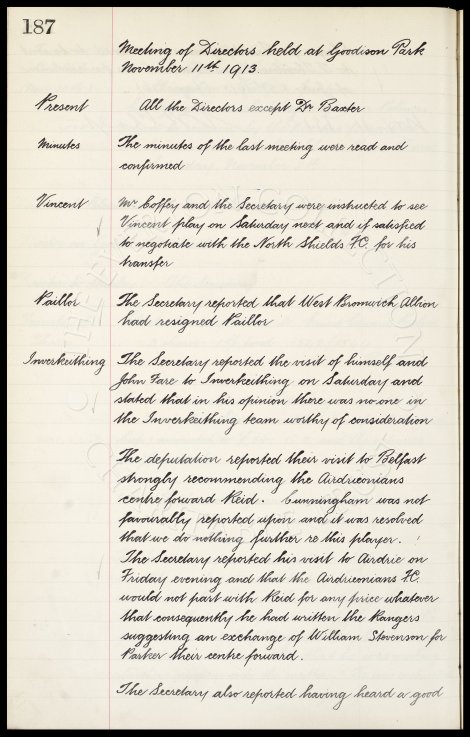 187
Meeting of Directors held at Goodison Park
November 11th 1913.
Present All the Directors except Dr Baxter
Minutes The minutes of the last meeting were read and
confirmed
Vincent Mr Coffey and the Secretary were instructed to see
Vincent play on Saturday next and if satisfied
to negotiate with the North Shields F.C. for his
transfer
Paillor The Secretary reported that West Bromwich Albion
had resigned Paillor
Inverkeithing The Secretary reported the visit of himself and
John Fare to Inverkeithing on Saturday and
stated that in his opinion there was no one in
the Inverkeithing team worthy of consideration
The deputation reported their visit to Belfast
strongly recommending the Airdrieonians
centre forward Reid. Cunningham was not
favourably reported upon and it was resolved
that we do nothing further re this player.
The Secretary reported his visit to Airdrie on
Friday evening and that the Airdrieonians F.C.
would not part with Reid for any price whatever
that consequently he had written the Rangers
suggesting an exchange of William Stevenson for
Parker their centre forward.
The Secretary also reported having heard a good